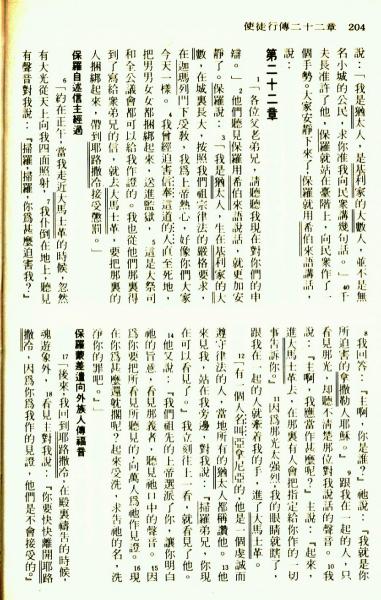 使徒行傳二十二章 204
說：「我是猶太人，是基利家的大數人，並不是無
名小城的公民，求你准我向民衆講幾句話。」 40千
夫長准許了他，保羅就站在臺階上，向民衆作了一
個手勢。大家安靜下來了，保羅就用希伯來語講話，
說：
第二十二章
1「各位父老弟兄，請聽聽我現在對你們的申
辯。」 2他們聽見保羅用希伯來語說話，就更加安
靜了。保羅說： 3「我是猶太人，生在基利家的大
數，在城裏長大，按照我們祖宗律法的嚴格要求，
在迦瑪列門下受教，我爲上帝熱心，好像你們大家
今天一樣。 4我曾經迫害信奉這道的人直至死地，
把男男女女都捆綁起來，送進監獄， 5這是大祭司
和全公議會都可以給我作證的。我也從他們那裏得
到了寫給衆弟兄的信，就去大馬士革，要把那裏的
人捆綁起來，帶到耶路撒冷接受懲罰。」
保羅自述信主經過
6「約在正午，當我走近大馬士革的時候，忽然
有大光從天上向我四面照射， 7我仆倒在地上，聽見
有聲音對我說：『掃羅，掃羅，你爲甚麼迫害我？』
8我回答：『主啊，你是誰？』祂說：『我就是你
所迫害的拿撒勒人耶穌。』 9跟我在一起的人，只
看見那光，却聽不清楚那位對我說話的聲音。 10我
說：『主啊，我應當作甚麼呢？』主說：『起來，
進大馬士革去，在那裏有人會把指定給你作的一切
事告訴你。』 11因爲那光太強烈，我的眼睛就瞎了，
跟我在一起的人就牽着我的手，進了大馬士革。
12「有一個人名叫亞拿尼亞的，他是一個虔誠而
遵守律法的人，當地所有的猶太人都稱讚他。 13他
來見我，站在我旁邊，對我說：『掃羅弟兄，你現
在可以看見了。』我立刻往上一看，就看見了他。
14他又說：『我們祖先的上帝選派了你，讓你明白
祂的旨意，看見那義者，聽見祂口中的聲音。 15因
爲你要把所看見所聽見的，向萬人爲祂作見證。 16現
在你爲甚麼還躭擱呢？起來受洗，求告祂的名，洗
淨你的罪吧。』」
保羅蒙差遣向外族人傳福音
17「後來我回到耶路撒冷，在殿裏禱告的時候，
魂遊象外， 18看見主對我說：『你要快快離開耶路
撒冷，因爲你爲我作的見證，他們是不會接受的。』